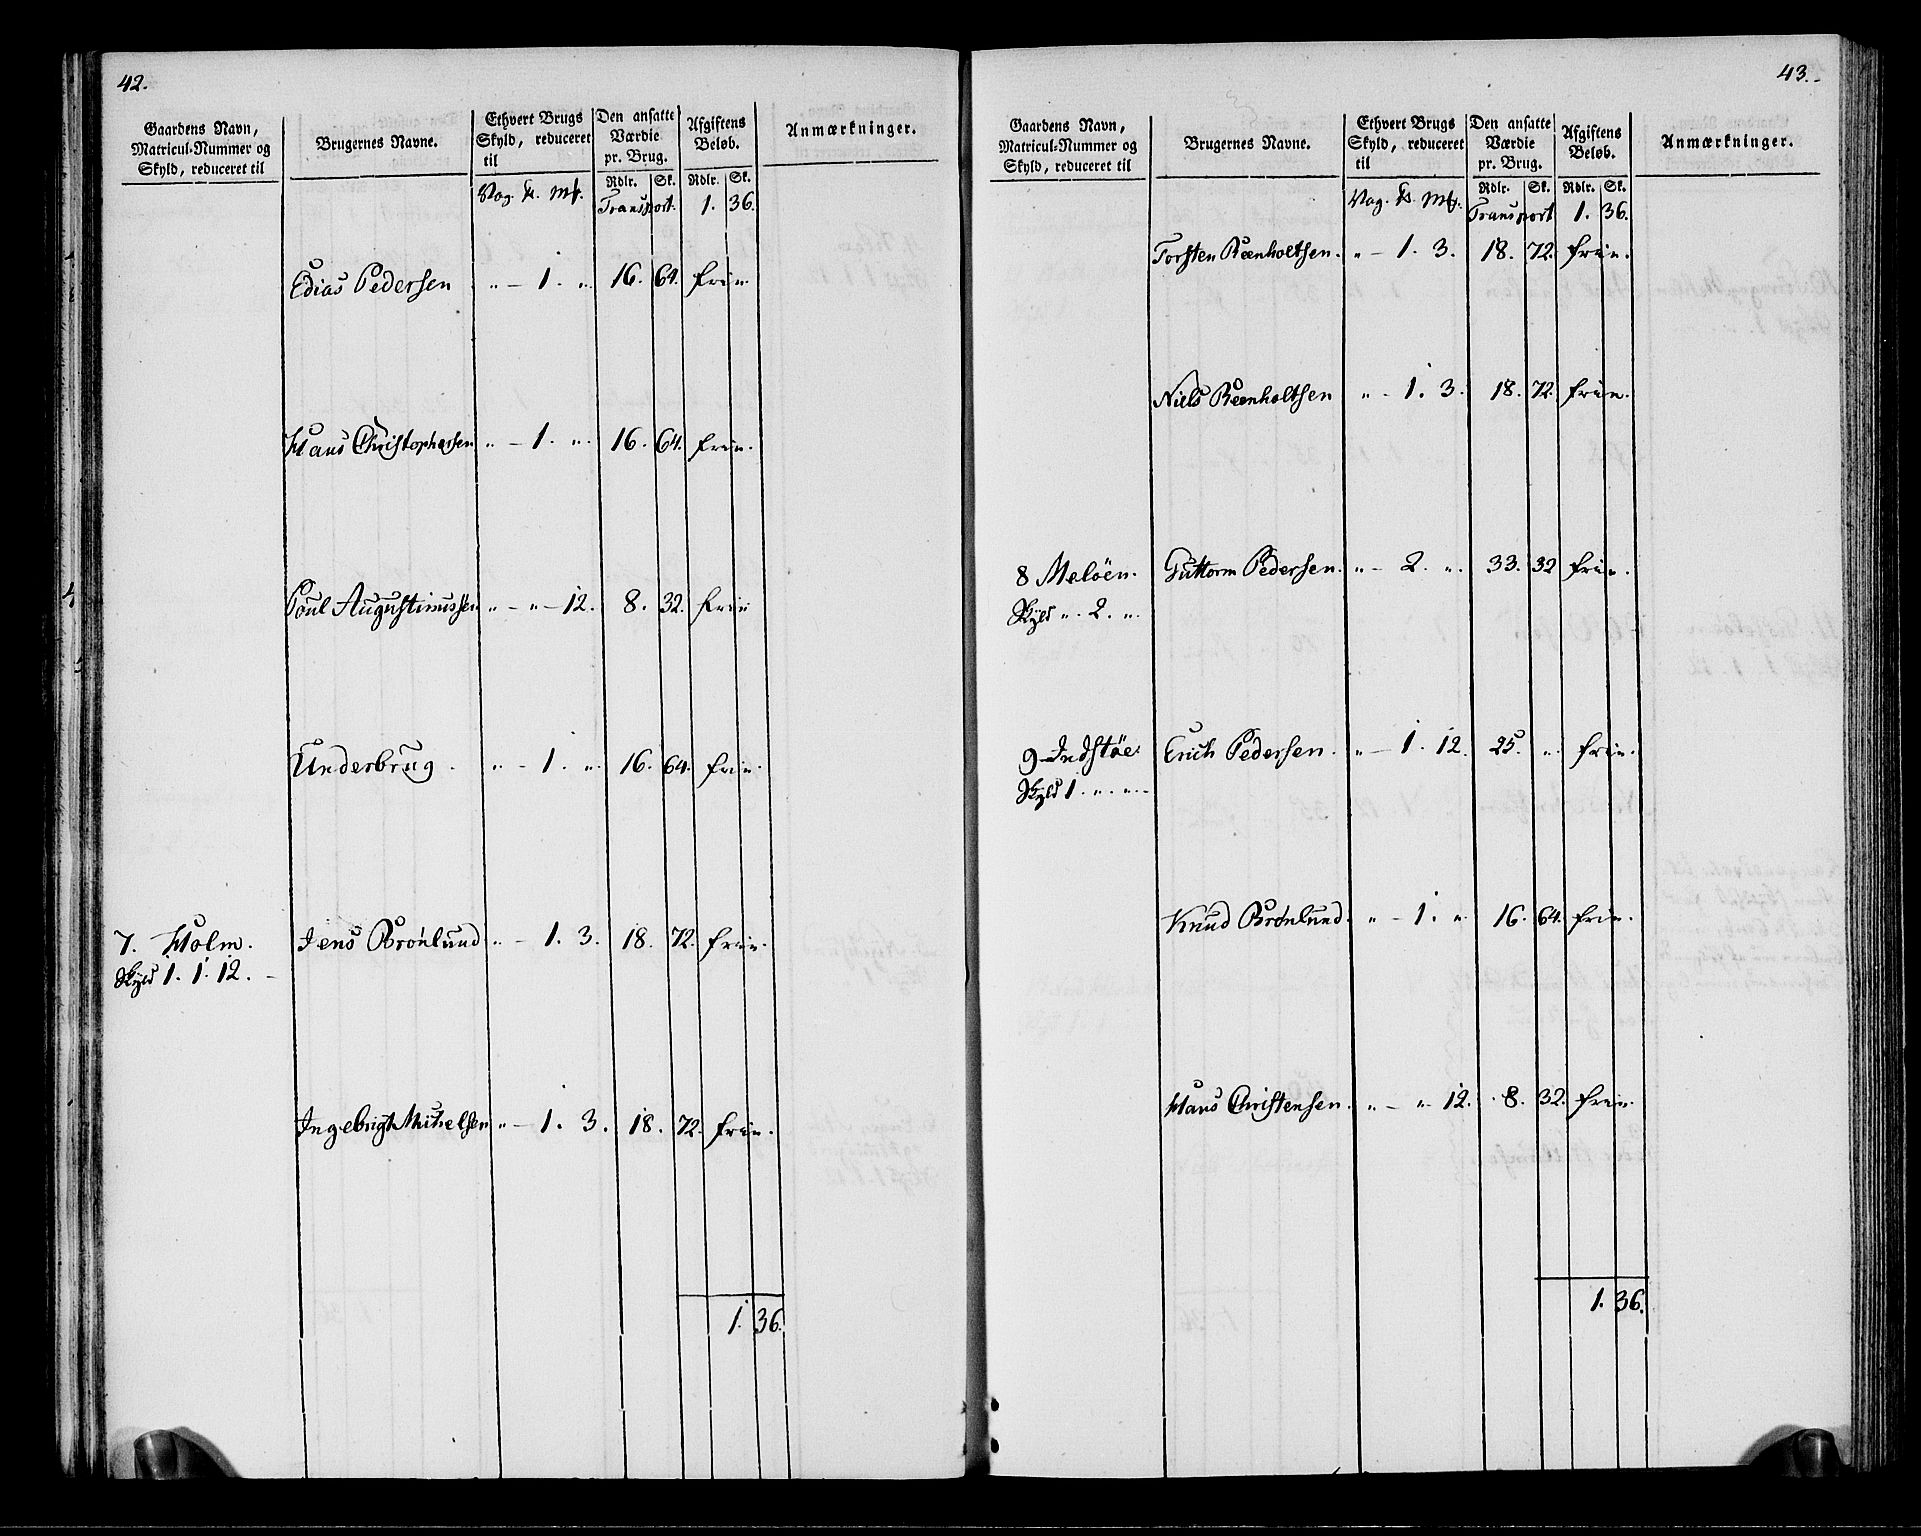 42.
Gaardens Navn, Matricul-Nummer og Skyld, reduceret til
Brugernes Navne.
Ethvert Brugs Skyld, reduceret til
Den ansatte Værdie pr. Brug.
Afgiftens Beløb.
Anmærkninger.
Vog. Mk.
Rdlr. Sk. Rdlr. Sk.
Transport. 1. 36.
Edias Pedersen „ – 1. „ 16. 64. frie.
Hans Christophersen „ – 1. „ 16. 64. frie.
Poul Augustinussen „ – „ – 12. 8. 32. frie
Underbrug. „ – 1. „ 16. 64. frie.
7. Holm. Jens Brönlund „ – 1. 3. 18. 72. frie.
Skyld 1. 1. 12. –
Ingebrigt Michelsen „ – 1. 3. 18. 72. frie.
1. 36.
43.
Gaardens Navn, Matricul-Nummer og Skyld, reduceret til
Brugernes Navne.
Ethvert Brugs Skyld, reduceret til
Den ansatte Værdie pr. Brug.
Afgiftens Beløb.
Anmærkninger.
Vog. Mk.
Rdlr. Sk. Rdlr. Sk.
Transport 1. 36.
Torsten Reenholtsen. „ – 1. 3. 18. 72. frie.
Niels Reenholtsen „ – 1. 3. 18. 72. frie.
8 Melöen. Guttorm Pedersen. „ – 2. „. 33. 32 frie.
Skyld „. 2. „.
9 Indstöe. Erich Pedersen. „ – 1. 12. 25. „. frie.
Skyld 1. „. „. –
Knud Brönlund. „ – 1. „. 16. 64. frie.
Hans Christensen. „ – „. 12. 8. 32. frie.
1. 36.